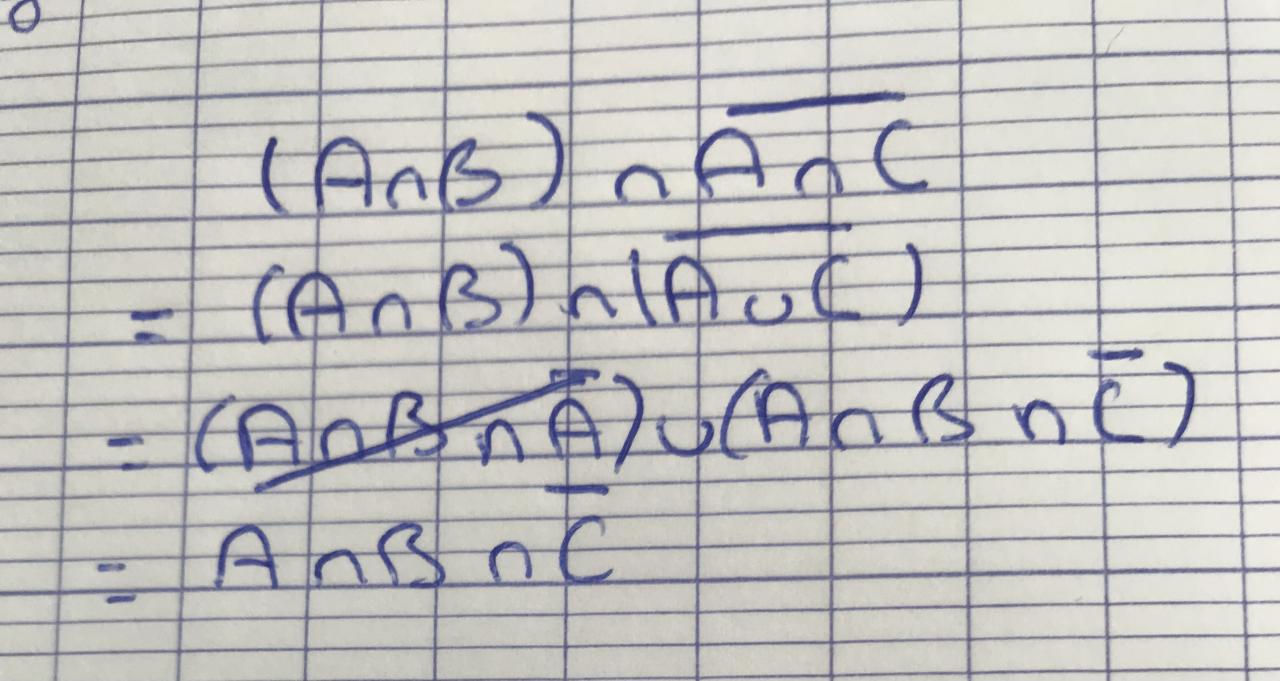 (A∩B) ∩ \overline{A∩C}
= (A∩B) ∩ (\overline{A∪C})
= (A∩B∩\overline{A}) ∪ (A∩B∩\overline{C})
= A∩B∩\overline{C}